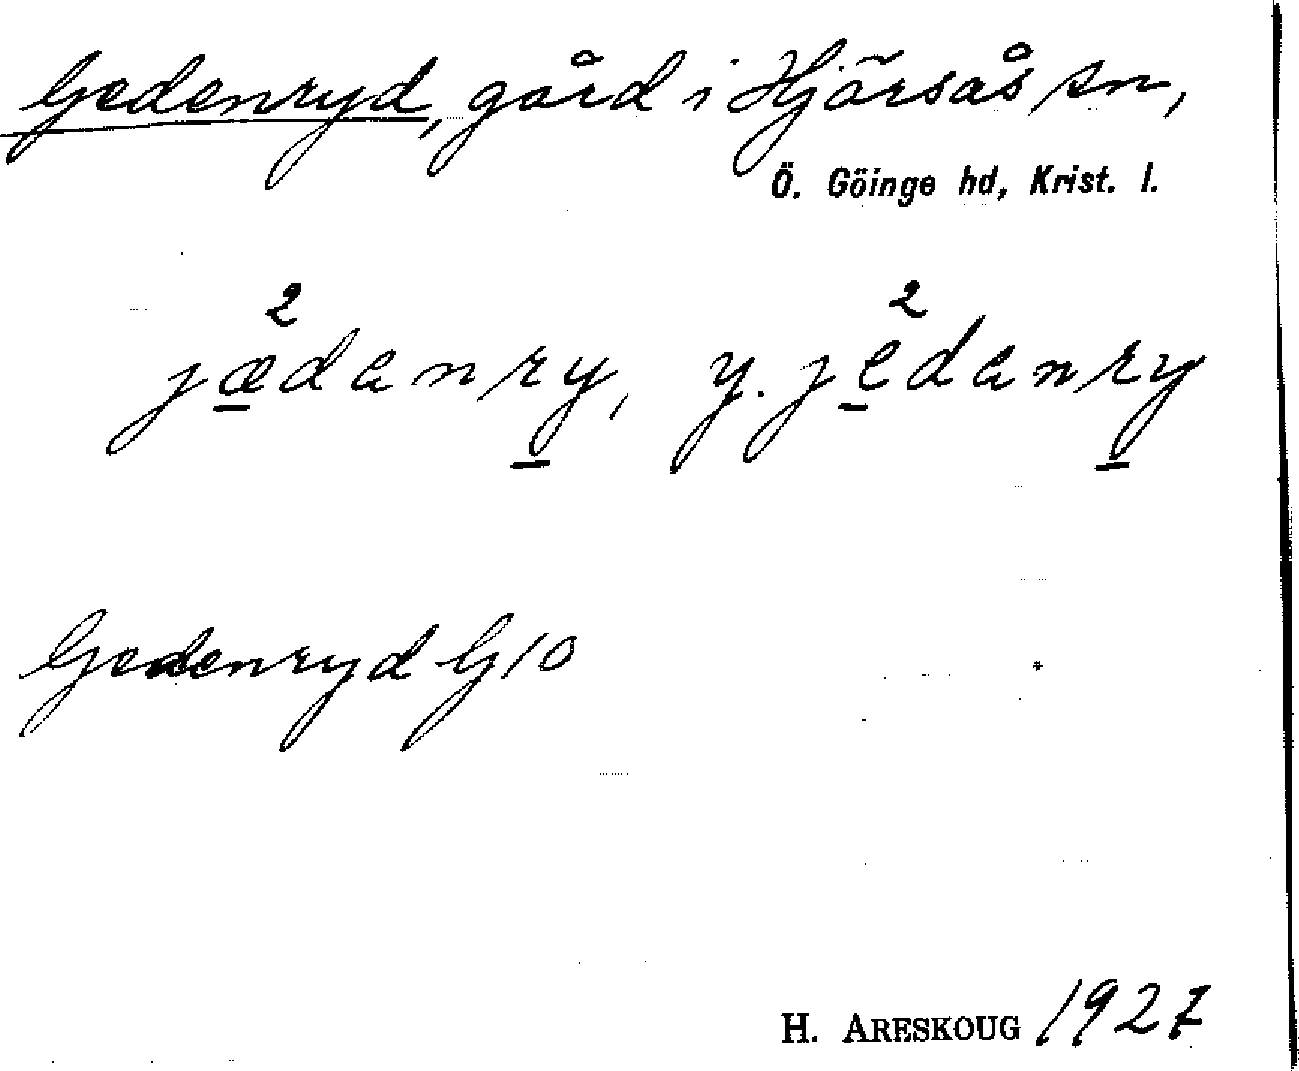 Gedenryd, gård i Hjärsås sn,
Ö. Göinge hd, Krist. l.
jæ̲²danry̲, y. je̲²danry̲
Gedenryd G10
H. ARESKOUG 1927